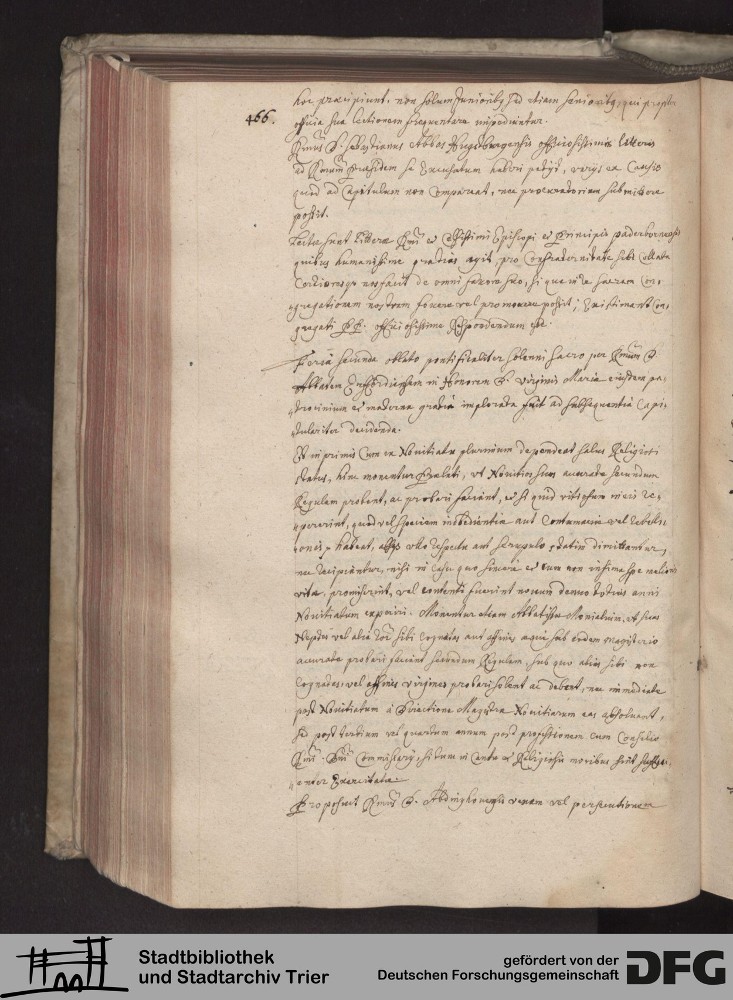 466.
hoc praecipiunt, non solum Junioribus, sed etiam senioribus, qui propter
officia sua lectionem frequentare impediuntur.
Rmus D. Sebastianus Abbas Huysburgensis officiosissimis litteris
ad Rmum Praesidem se excusatum haberi petijt, varijs ex causis
quod ad Capitulum non compareat, nec procuratorium submittere
possit.
Lectae sunt litterae Rmi et Celsissimi Episcopi et Principis paderbornensis
quibus humanissime gratias agit, pro confraternitate sibi collata
nos facit de omni favore suo, si qua in re sacram con-
gregationem nostram fovere vel promovere possit; Existimarunt con-
gregati PP. officiosissime respondendum esse.
Feria secunda oblato pontificaliter solenni sacro per Rmum D.
Abbatem in Honorem B. Virginis Mariae eiusdem pa-
trocinium et materna gratia implorata fuit ad subsequentia Capi-
tulariter decidenda.
Et inprimis cum ex Novitiatu plurimum dependeat salus Religiosi
status, hinc monentur Praelati, ut Novitios suos accurate secundum
Regulam probent, ac probari faciant, et si quid vitiosum in eis re-
pererint, quod vel speciem inobedientiae aut contumaciae vel rebelli-
onis habeat, absque ullo respectu aut scrupulo statim dimittantur,
nec recipiantur, nisi in casu quo sincere et cum non infima spe melioris
vitae, promiserint, vel contenti fuerint novum denuo totius anni
Novitiatum experiri. Monentur etiam Abbatissae Monialium, ut suas
Neptes vel alias sibi cognatas aut affines aeque sub eodem magisterio
accurate probari faciant secundum Regulam, sub quo aliae sibi non
cognatae, vel affines virgines probari solent ac debent, nec immediate
post Novitiatum a Directione Magistrae Novitiarum eas absolvant,
sed post tertium vel quartum annum post professionem, cum Consilio
Rmi Dni Commissarij, si tum in cantu et Religiosis moribus sint suffici-
enter Exercitatae.
Proposuit Rmus D. Abdinghoffensis vexam vel persecutionem
Stadtbibliothek
und Stadtarchiv Trier
gefördert von der
Deutschen Forschungsgemeinschaft
DFG